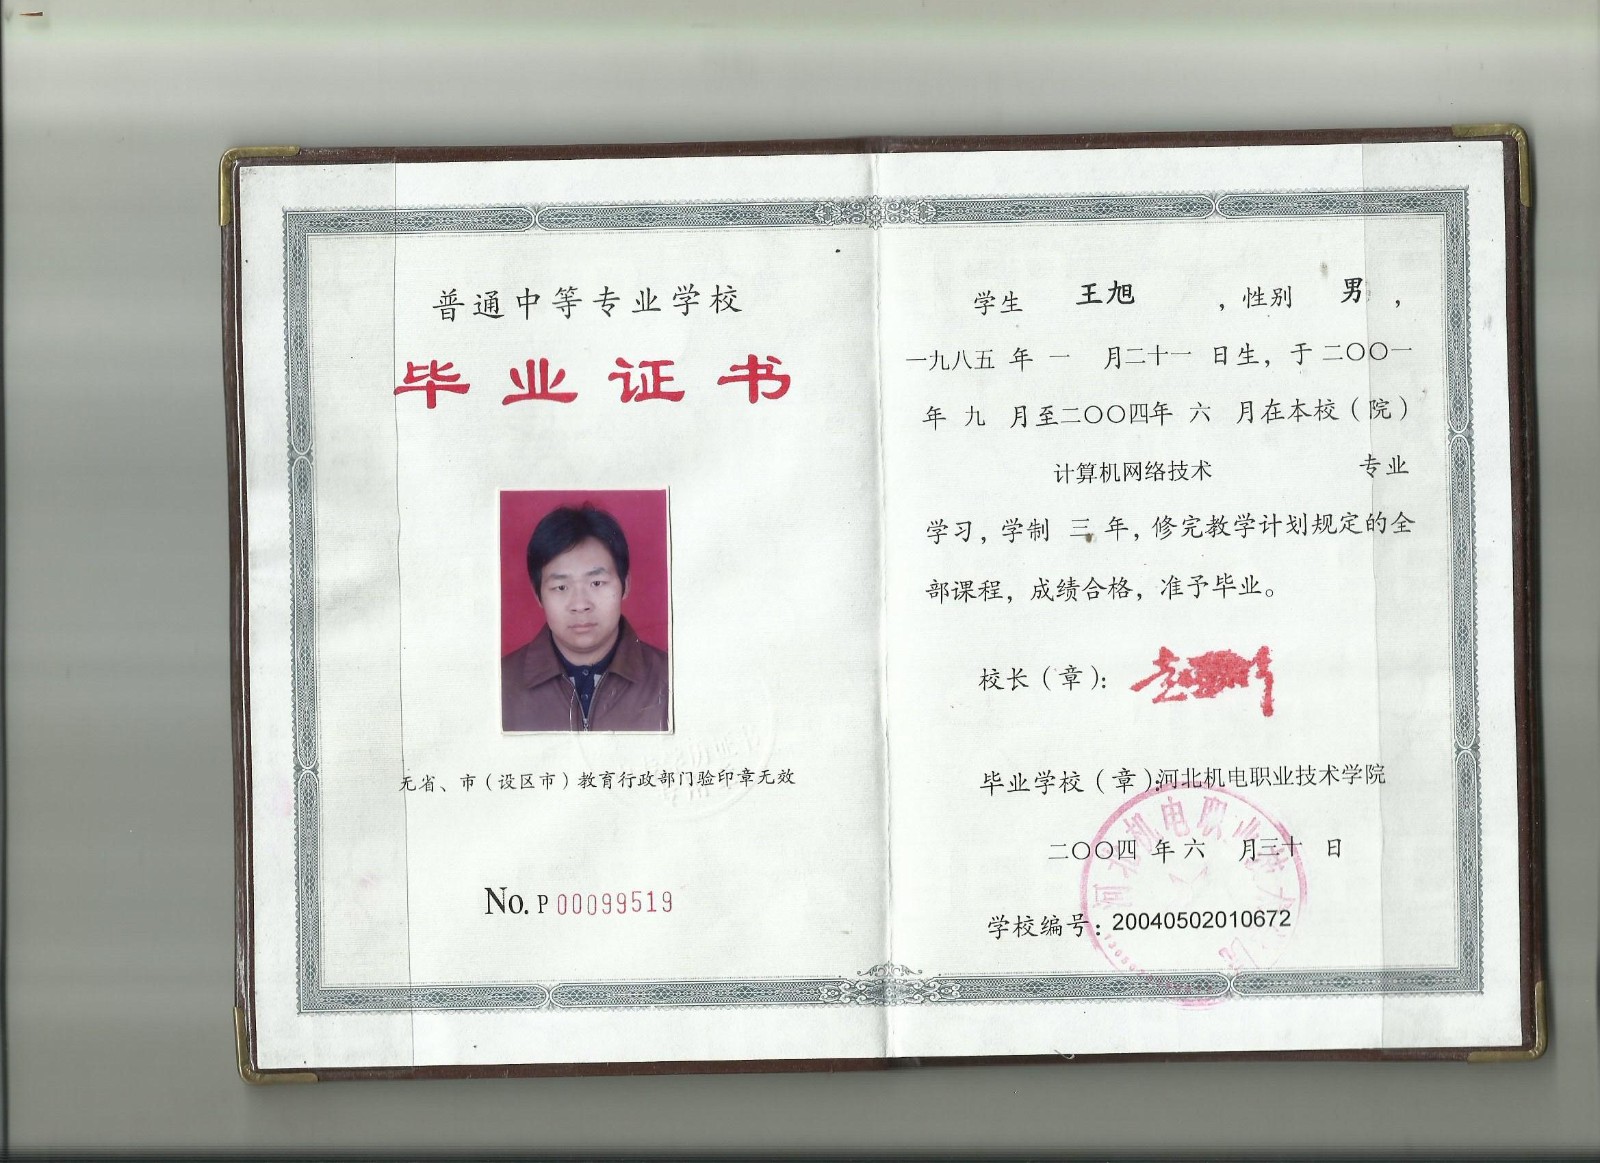 普通中等专业学校
毕业证书
无省、市（设区市）教育行政部门验印章无效
No. P 00099519
学生 王旭 ，性别 男 ，
一九八五 年 一 月二十一 日生，于 二〇〇一
年 九 月至二〇〇四年 六 月在本校（院）
计算机网络技术 专业
学习，学制 三 年，修完教学计划规定的全
部课程，成绩合格，准予毕业。
校长（章）：
毕业学校（章）：河北机电职业技术学院
二〇〇四 年 六 月三十 日
学校编号：20040502010672
河北机电职业技术学院